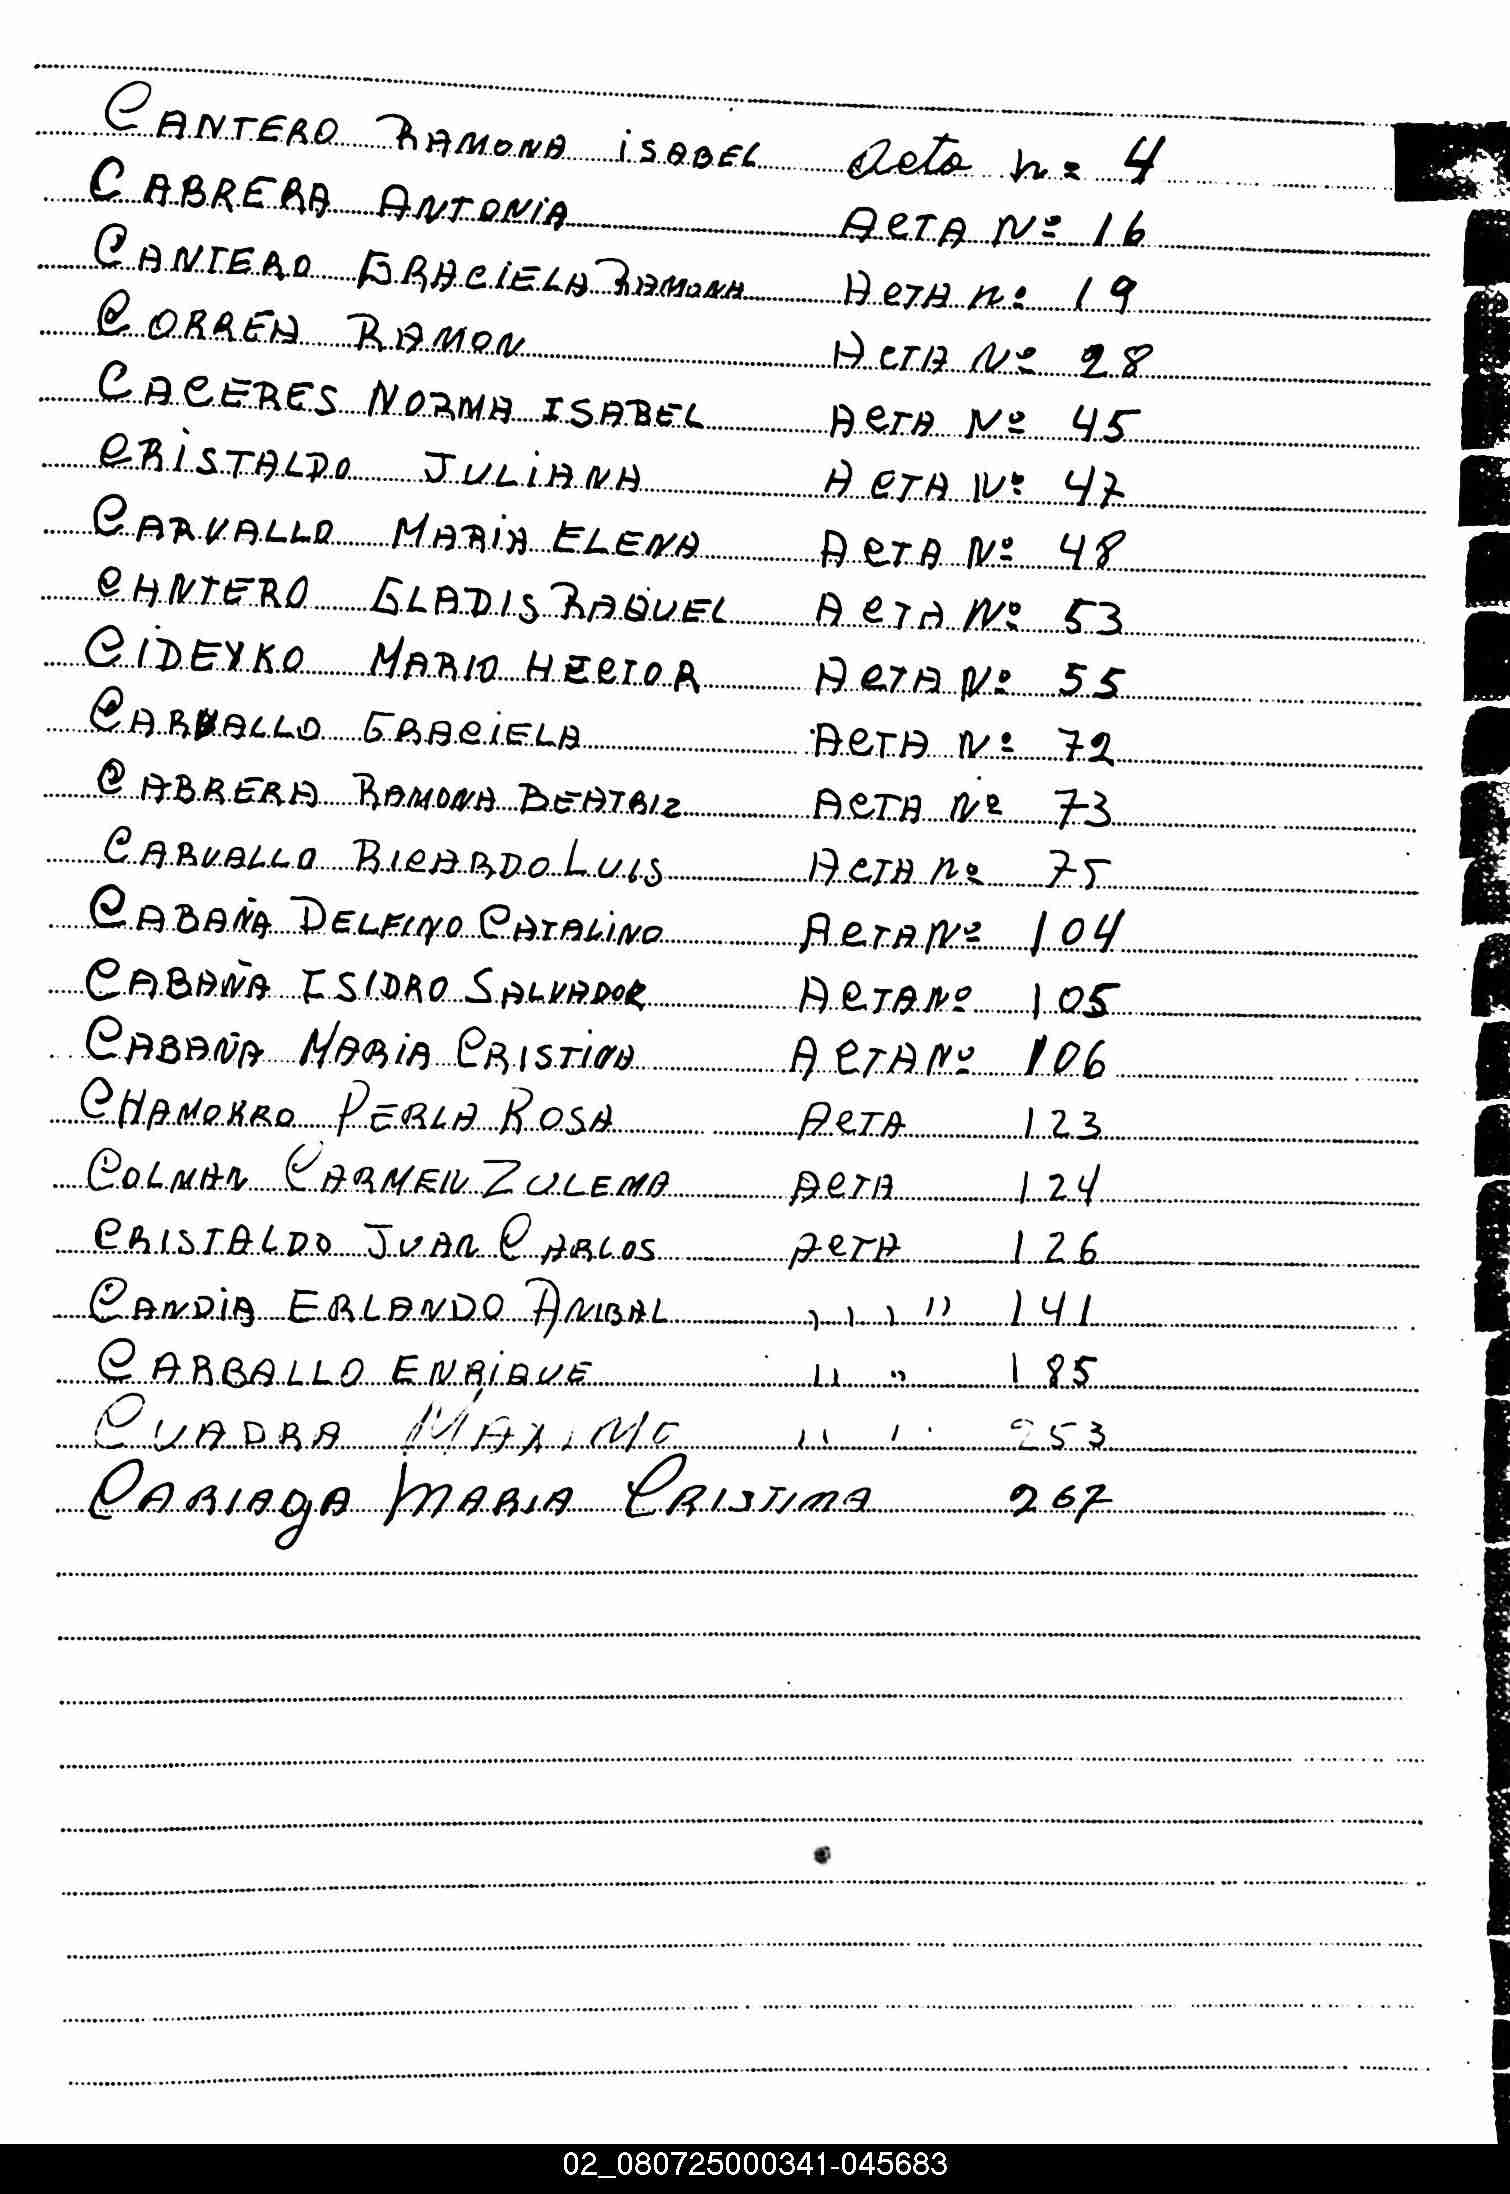 CANTERO RAMONA ISABEL Acta nº 4
CABRERA ANTONIA ACTA Nº 16
CANTERO GRACIELA RAMONA ACTA nº 19
CORREA RAMON ACTA Nº 28
CACERES NORMA ISABEL ACTA Nº 45
CRISTALDO JULIANA ACTA Nº 47
CARVALLO MARIA ELENA ACTA Nº 48
CANTERO GLADIS RAQUEL ACTA Nº 53
CIDEYKO MARIO HECTOR ACTA Nº 55
CARVALLO GRACIELA ACTA Nº 72
CABRERA RAMONA BEATRIZ ACTA Nº 73
CARVALLO RICARDO LUIS ACTA nº 75
CABAÑA DELFINO CATALINO ACTA Nº 104
CABAÑA ISIDRO SALVADOR ACTA Nº 105
CABAÑA MARIA CRISTINA ACTA Nº 106
CHAMORRO PERLA ROSA ACTA 123
COLMAN CARMEN ZULEMA ACTA 124
CRISTALDO JUAN CARLOS ACTA 126
CANDIA ERLANDO ANIBAL , , , " 141
CARBALLO ENRIQUE " " 185
CUADRA MAXIMO " " 253
CARIAGA MARIA CRISTINA 267
02_080725000341-045683